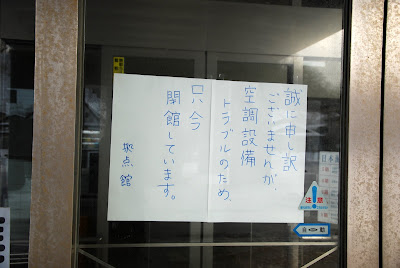 誠に申し訳
ございませんが、
空調設備
トラブルのため、
只今
閉館しています。
拠点館
注意
自動